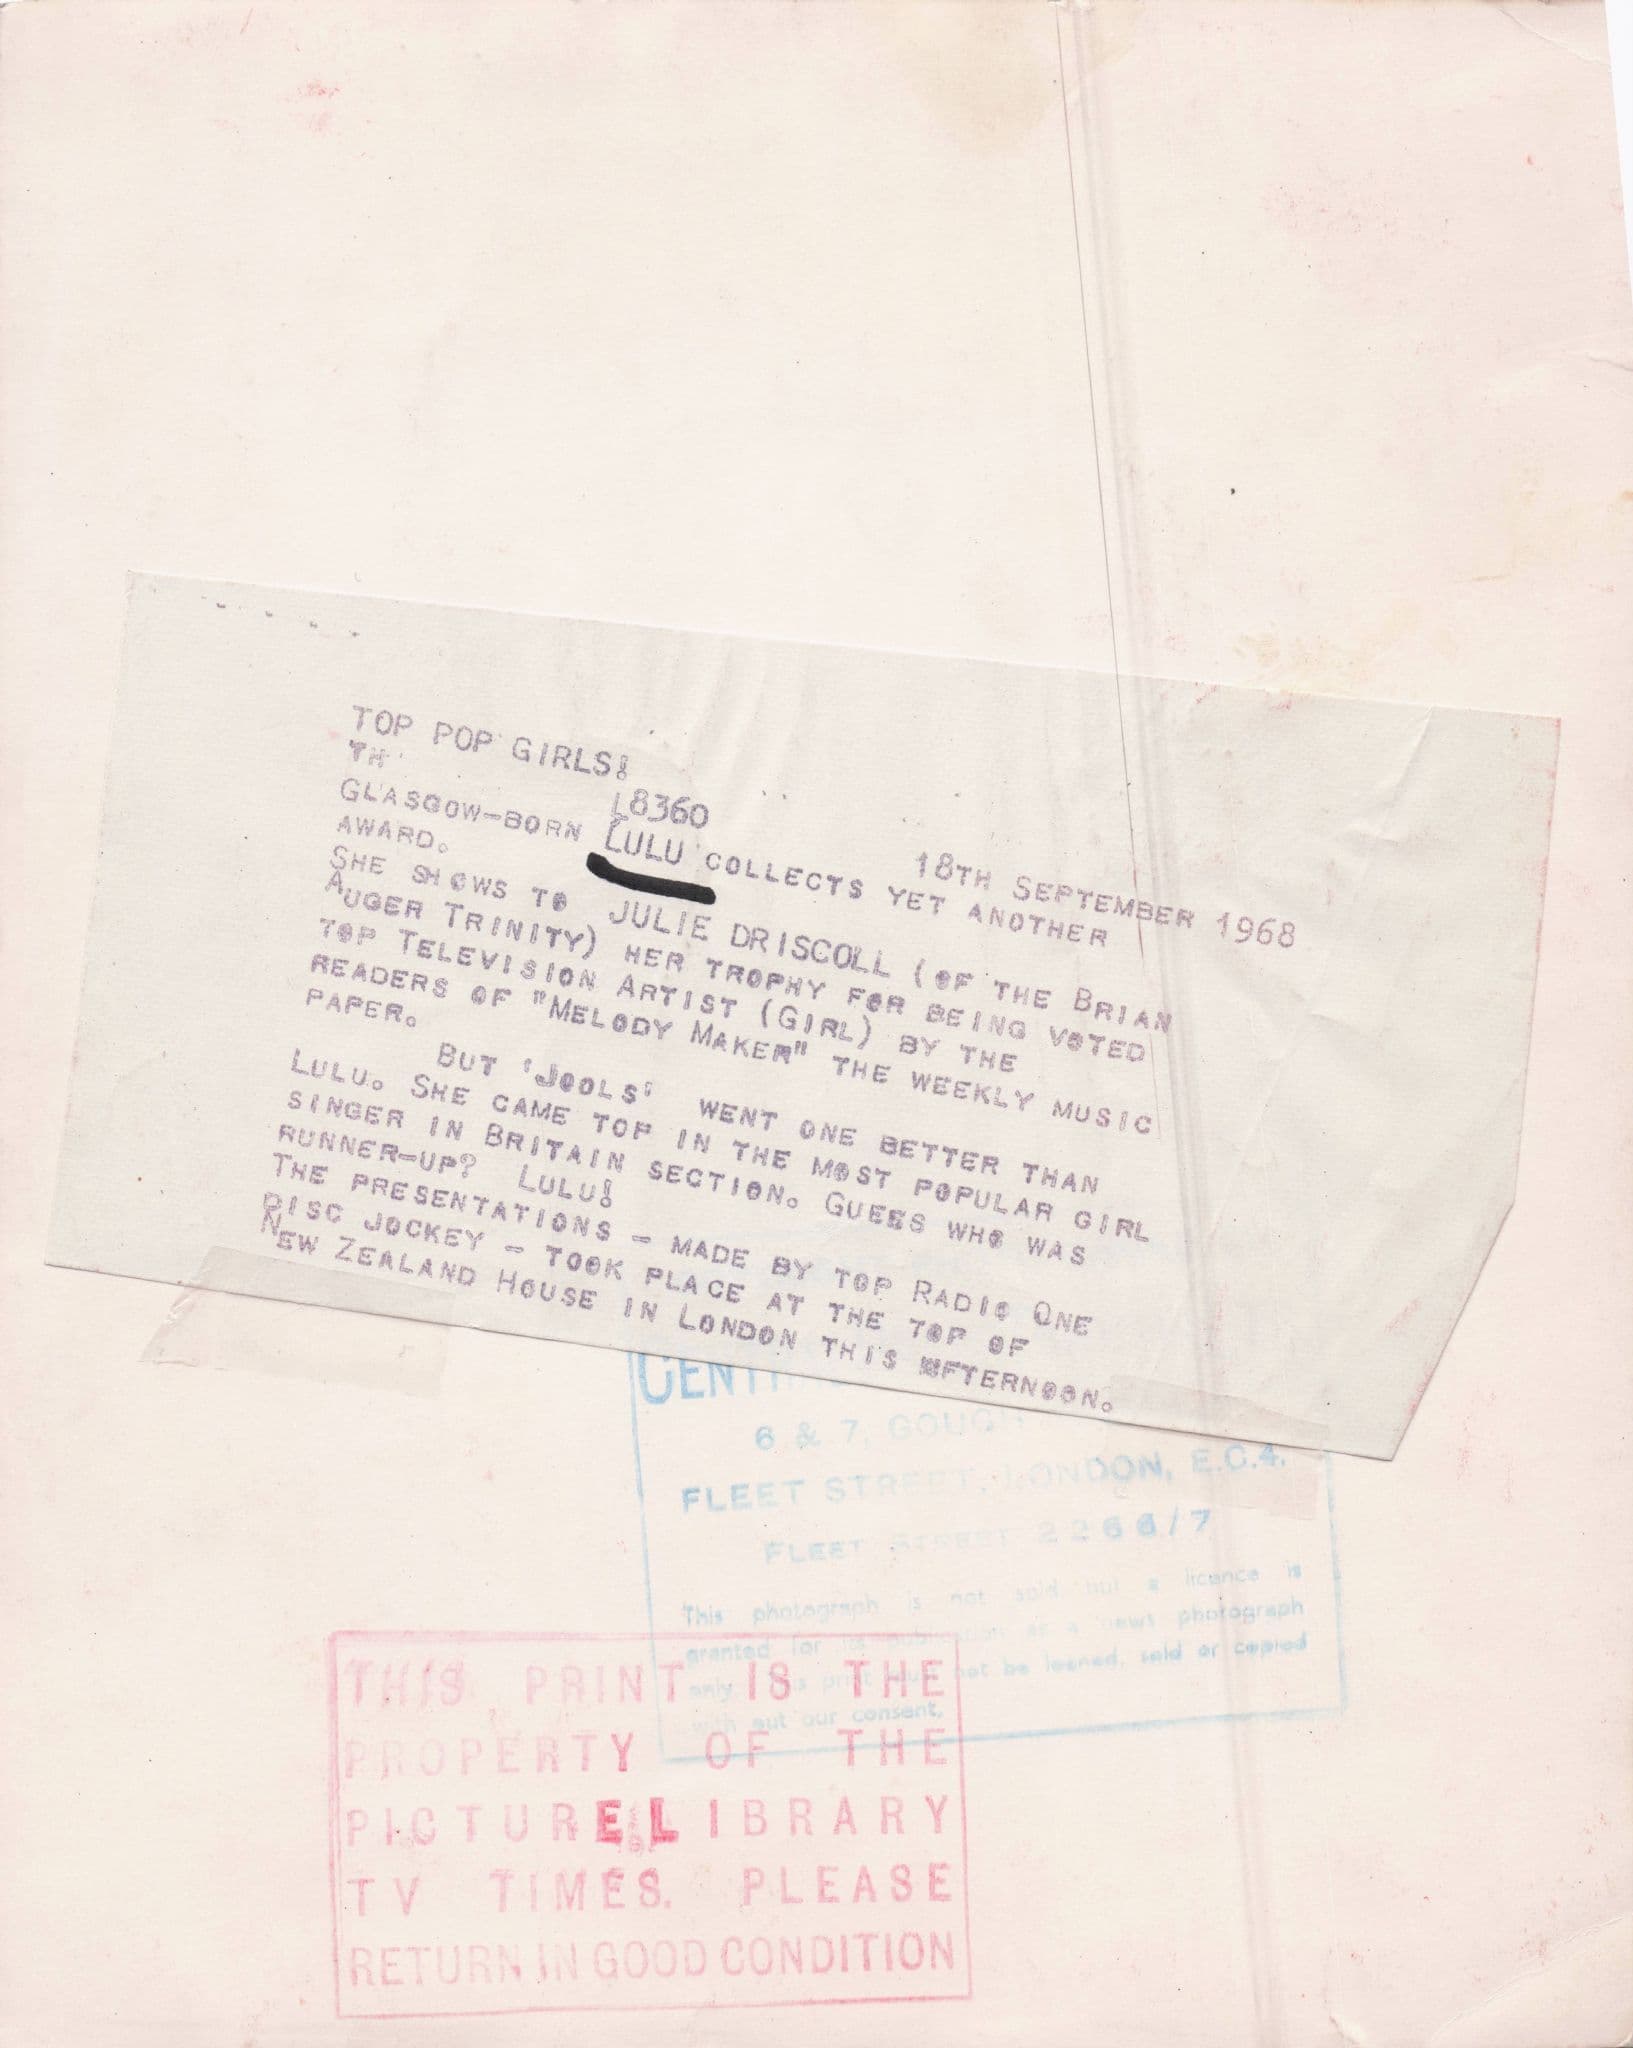 TOP POP GIRLS!
TH
L8360
18TH SEPTEMBER 1968
GLASGOW-BORN LULU COLLECTS YET ANOTHER
AWARD.
SHE SHOWS TO JULIE DRISCOLL (OF THE BRIAN
AUGER TRINITY) HER TROPHY FOR BEING VOTED
TOP TELEVISION ARTIST (GIRL) BY THE
READERS OF "MELODY MAKER" THE WEEKLY MUSIC
PAPER.
BUT 'JOOLS' WENT ONE BETTER THAN
LULU. SHE CAME TOP IN THE MOST POPULAR GIRL
SINGER IN BRITAIN SECTION. GUEES WHO WAS
RUNNER-UP? LULU!
THE PRESENTATIONS - MADE BY TOP RADIO ONE
DISC JOCKEY - TOOK PLACE AT THE TOP OF
NEW ZEALAND HOUSE IN LONDON THIS AFTERNOON.
6 & 7, GOUGH
FLEET STREET, LONDON, E.C.4.
FLEET STREET 2266/7
This photograph is not sold but a licence is
granted for its publication as a news photograph
only. This print must not be loaned, sold or copied
with out our consent.
THIS PRINT IS THE
PROPERTY OF THE
PICTURE LIBRARY
TV TIMES. PLEASE
RETURN IN GOOD CONDITION